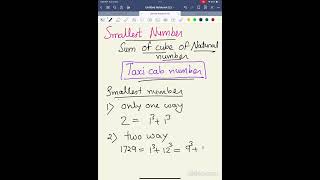 Smallest Number
Sum of cube of Natural
number
Taxi cab number
Smallest number
1) only one way
2 = 1³+1³
2) two way
1729 = 1³+12³ = 9³+